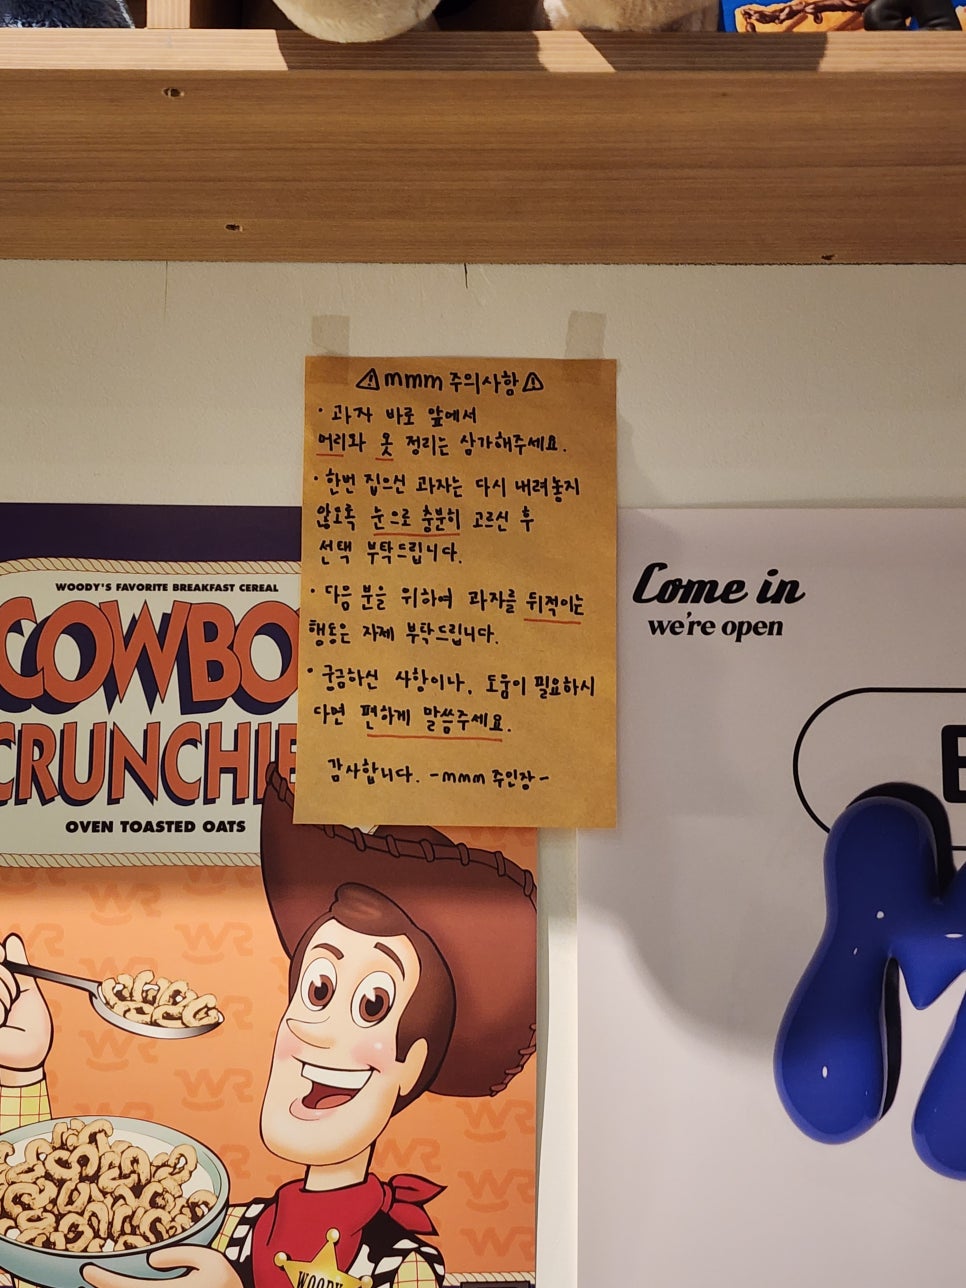 ⚠mmm 주의사항⚠
· 과자 바로 앞에서
머리와 옷 정리는 삼가해주세요.
· 한번 집으신 과자는 다시 내려놓지
않도록 눈으로 충분히 고르신 후
선택 부탁드립니다.
· 다음 분을 위하여 과자를 뒤적이는
행동은 자제 부탁드립니다.
· 궁금하신 사항이나, 도움이 필요하시
다면 편하게 말씀주세요.
감사합니다. -mmm 주인장-
WOODY'S FAVORITE BREAKFAST CEREAL
COWBO
CRUNCHIE
OVEN TOASTED OATS
WOODY
Come in
we're open